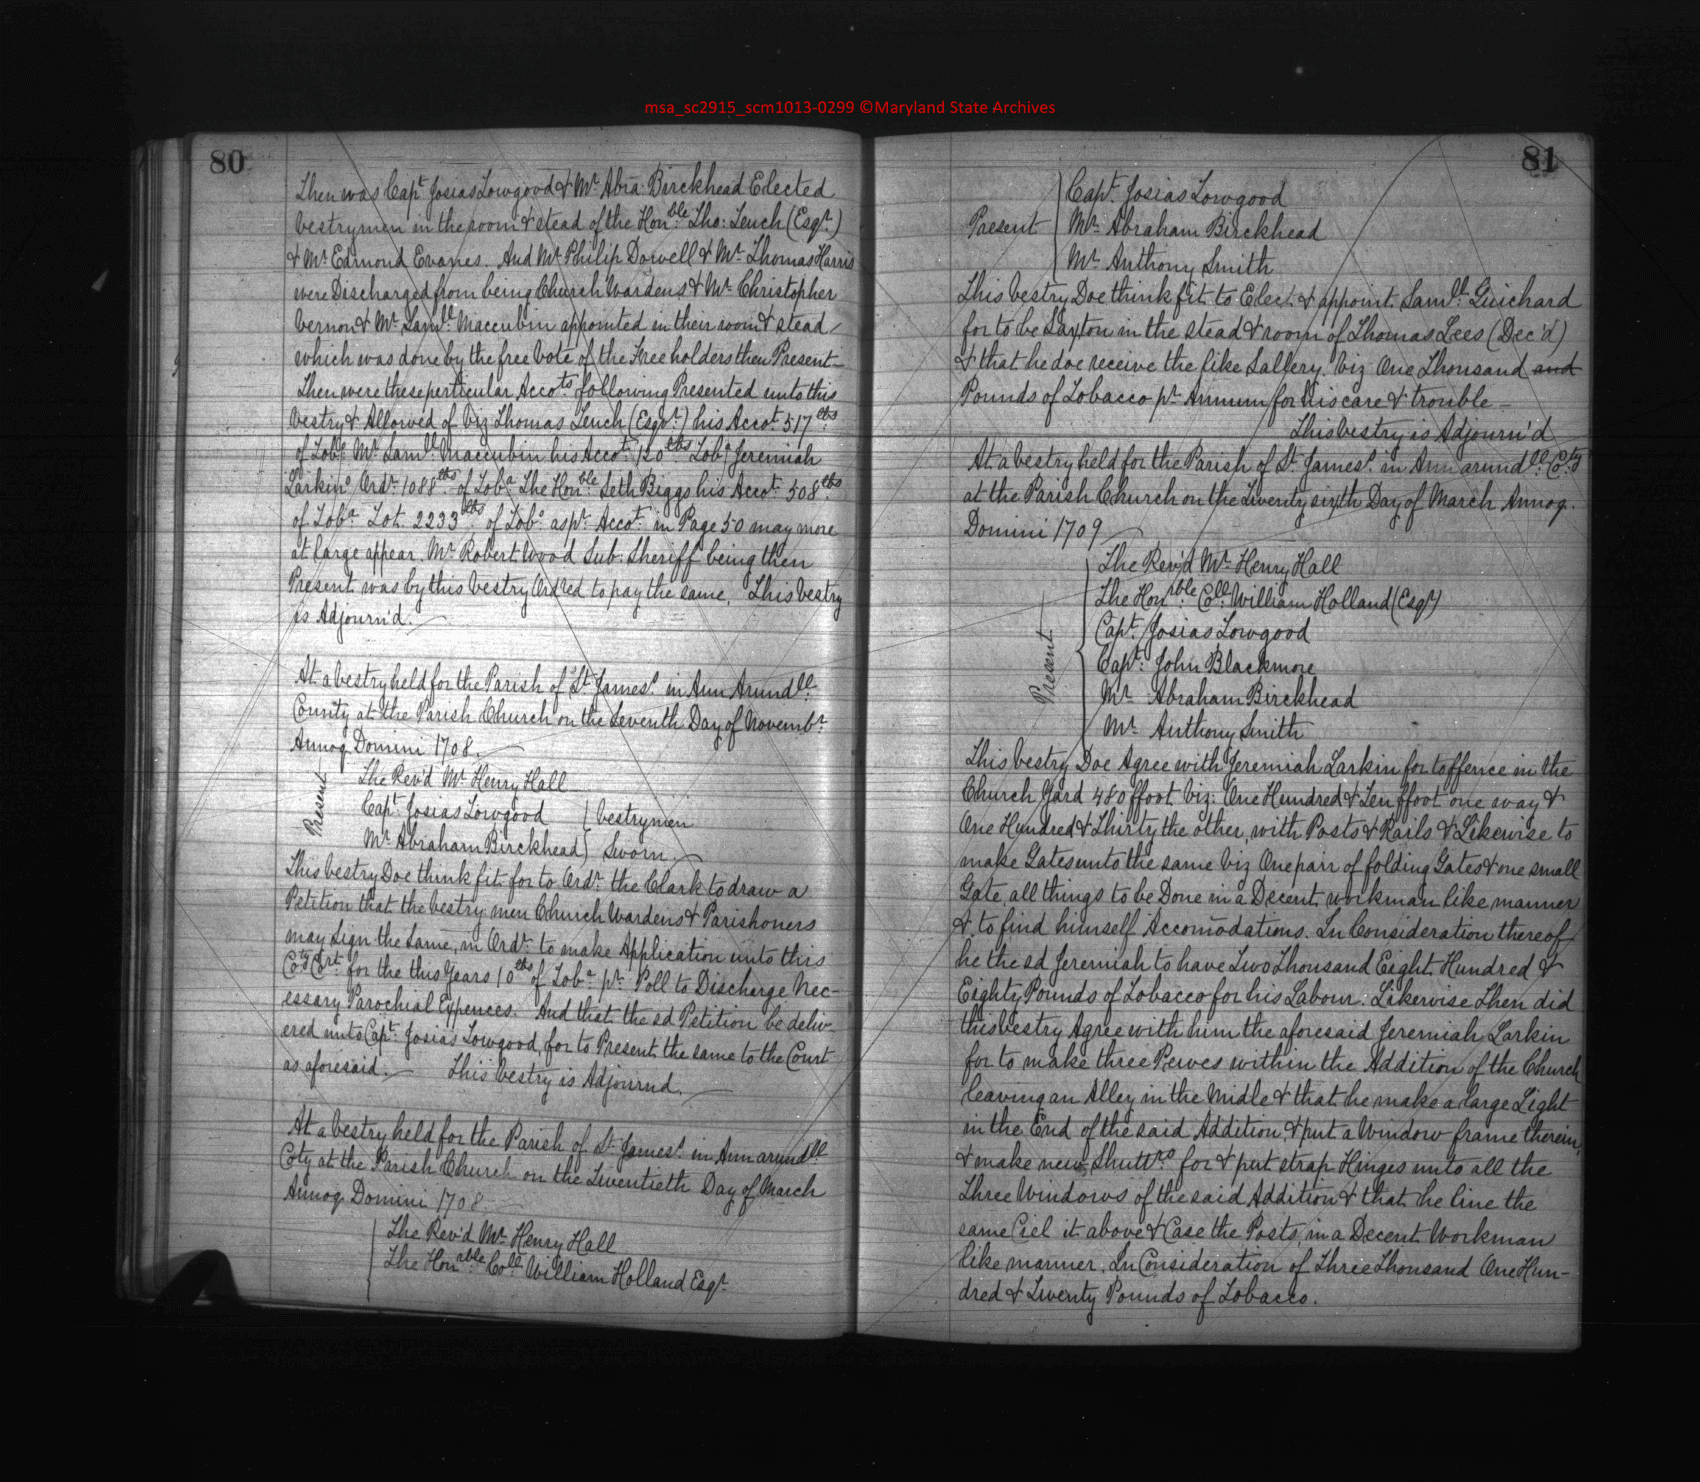 msa_sc2915_scm1013-0299 ©Maryland State Archives
80
Then was Capt. Josias Towgood & Mr. Abra: Birckhead Elected
Vestrymen in the room & stead of the Honble Tho: Tench (Esqr.)
& Mr. Edmond Evanes. And Mr. Philip Dowell & Mr. Thomas Harris
were Discharged from being Church Wardens & Mr. Christopher
Vernon & Mr. Samll. Maccubin appointed in their room & stead
which was done by the free Vote of the Freeholders then Present
Then were these perticular Accots. following Presented unto this
Vestry & Allowed of Viz Thomas Tench (Esqr.) his Accot. 517 lbs
of Tobo. Mr. Samll. Maccubin his Accot. 120 lbs Toba. Jeremiah
Larkins Ordr. 1088 lbs of Toba The Honble. Seth Biggs his Accot. 508 lbs
of Toba. Tot. 2233 lbs of Tobo. as pr. Accot. in Page 50 may more
at large appear. Mr. Robert Wood Sub: Sheriff being then
Present was by this Vestry Ordred to pay the same. This Vestry
is Adjourn'd.
At a Vestry held for the Parish of St. James's in Ann Arundll.
County at the Parish Church on the Seventh Day of Novembr.
Annoq Domini 1708.
Present
The Rev'd Mr. Henry Hall
Capt. Josias Towgood } Vestrymen
Mr. Abraham Birckhead } Sworn
This Vestry Doe think fit for to Ordr. the Clark to draw a
Petition that the Vestry men Church Wardens & Parishoners
may Sign the Same, in Ordr. to make Application unto this
Coty Crt. for the this Years 10 lbs of Toba. pr. Poll to Discharge Nec-
essary Parochial Expences. And that the sd Petition be deliv-
ered unto Capt. Josias Towgood, for to Present the same to the Court
as aforesaid. This Vestry is Adjournd.
At a Vestry held for the Parish of St. James's in Ann arundll
Coty at the Parish Church on the Twentieth Day of March
Annoq Domini 1708
The Rev'd Mr. Henry Hall
The Honrable Coll. William Holland Esqr.
81
Present
Capt. Josias Towgood
Mr. Abraham Birckhead
Mr. Anthony Smith
This Vestry Doe think fit to Elect & appoint Samll. Guichard
for to be Saxton in the stead & room of Thomas Lees (Dec'd)
& that he doe receive the like Sallery. Viz One Thousand and
Pounds of Tobacco pr. Annum for His care & trouble
This Vestry is Adjourn'd
At a Vestry held for the Parish of St. James's in Ann arundll Coty
at the Parish Church on the Twenty sixth Day of March Annoq.
Domini 1709
Present
The Rev'd Mr. Henry Hall
The Honrble. Coll. William Holland (Esqr)
Capt. Josias Towgood
Capt. John Blackmore
Mr. Abraham Birckhead
Mr. Anthony Smith
This Vestry Doe Agree with Jeremiah Larkin for to ffence in the
Church Yard 480 ffoot Viz: One Hundred & Ten ffoot one way &
One Hundred & Thirty the other, with Posts & Rails & Likewise to
make Gates unto the same Viz One pair of folding Gates & one small
Gate, all things to be Done in a Decent, workman like manner
& to find himself Accomodations. In Consideration thereof
he the sd Jeremiah to have Two Thousand Eight Hundred &
Eighty Pounds of Tobacco for his Labour. Likewise Then did
this Vestry Agree with him the aforesaid Jeremiah Larkin
for to make three Pewes within the Addition of the Church
leaving an Alley in the Midle & that he make a large Light
in the End of the said Addition, & put a Window frame therein,
& make new Shuttrs for & put strap Hinges unto all the
Three Windows of the said Addition & that he line the
same Ciel it above & Case the Posts, in a Decent Workman
like manner. In Consideration of Three Thousand One Hun-
dred & Twenty Pounds of Tobacco.